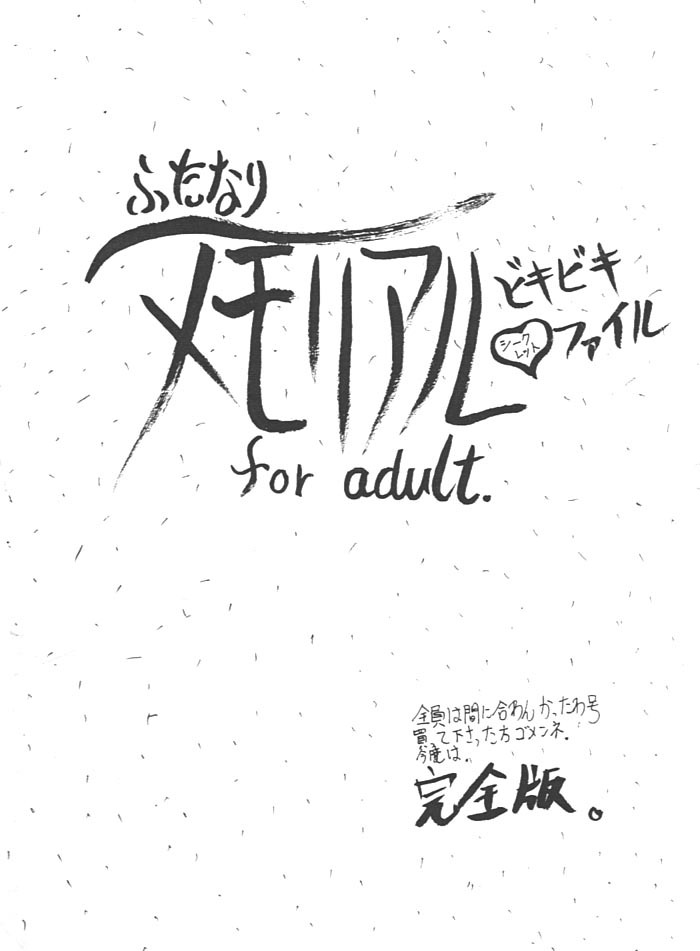 ふたなり
メモリアル
どキビキ
シークレット
ファイル
for adult.
全員は間に合わんかったわ号
買って下さった方ゴメンネ.
今度は..
完全版。